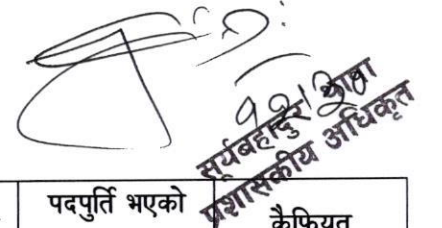 सूर्यबहादुर थापा
प्रशासकीय अधिकृत
पदपुर्ति भएको
कैफियत